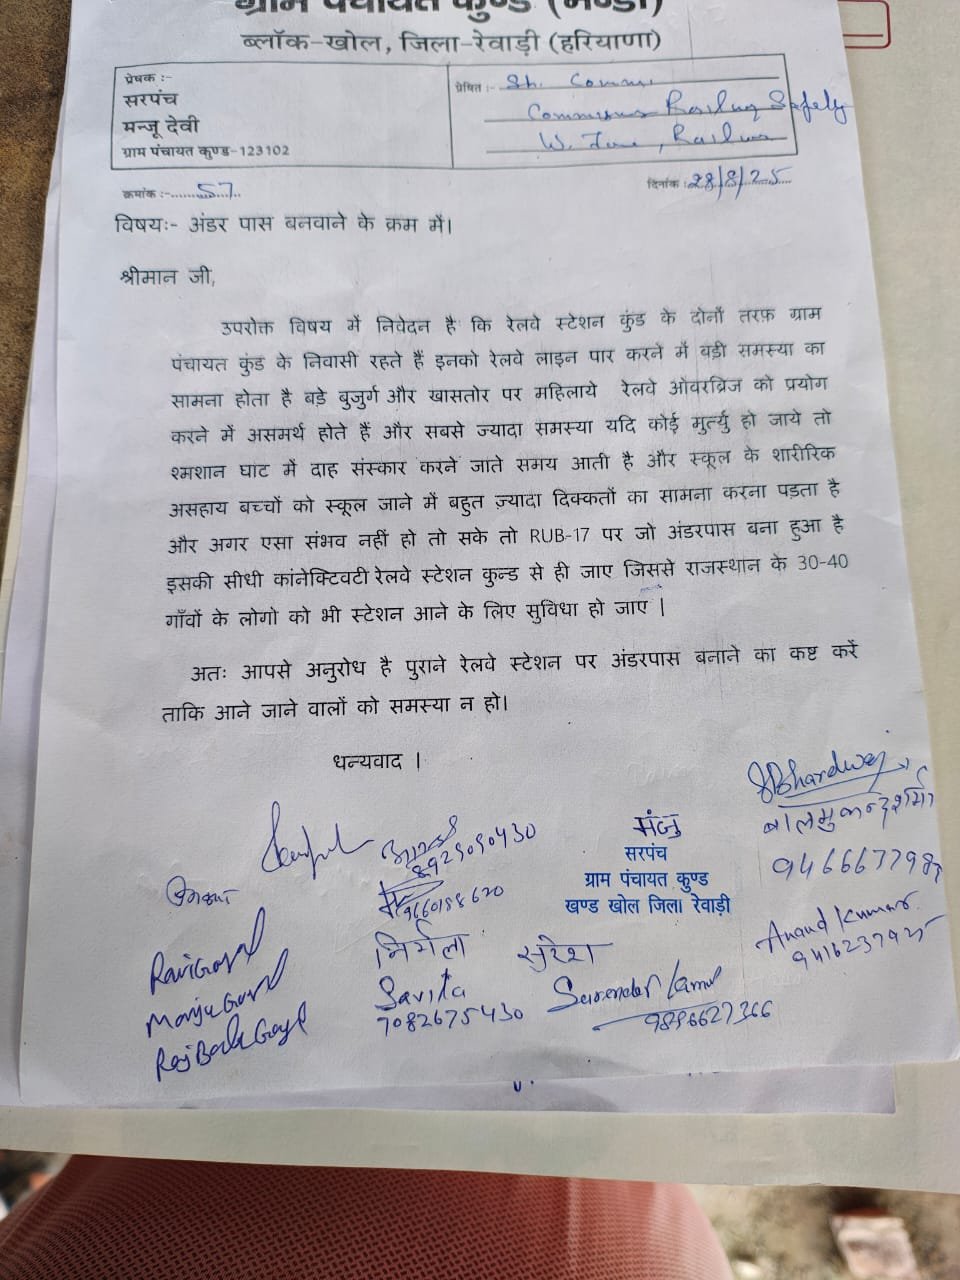 ग्राम पंचायत कुण्ड (मण्डी)
ब्लॉक-खोल, जिला-रेवाड़ी (हरियाणा)
प्रेषक :-
सरपंच
मन्जू देवी
ग्राम पंचायत कुण्ड-123102
प्रेषित :- Sh.
Railway Safety
W.
क्रमांक :-......57...
दिनांक :28/8/25
विषयः- अंडर पास बनवाने के क्रम में।
श्रीमान जी,
उपरोक्त विषय में निवेदन है कि रेलवे स्टेशन कुंड के दोनों तरफ़ ग्राम
पंचायत कुंड के निवासी रहते हैं इनको रेलवे लाइन पार करने में बड़ी समस्या का
सामना होता है बड़े बुजुर्ग और खासतोर पर महिलाये रेलवे ओवरब्रिज को प्रयोग
करने में असमर्थ होते हैं और सबसे ज्यादा समस्या यदि कोई मुर्त्यु हो जाये तो
श्मशान घाट में दाह संस्कार करने जाते समय आती है और स्कूल के शारीरिक
असहाय बच्चों को स्कूल जाने में बहुत ज़्यादा दिक्कतों का सामना करना पड़ता है
और अगर एसा संभव नहीं हो तो सके तो RUB-17 पर जो अंडरपास बना हुआ है
इसकी सीधी कांनेक्टिवटी रेलवे स्टेशन कुन्ड से ही जाए जिससे राजस्थान के 30-40
गाँवों के लोगो को भी स्टेशन आने के लिए सुविधा हो जाए |
अतः आपसे अनुरोध है पुराने रेलवे स्टेशन पर अंडरपास बनाने का कष्ट करें
ताकि आने जाने वालों को समस्या न हो।
धन्यवाद |
SBhardwaj
बालमुकन्द शर्मा
8929090430
मंजु
सरपंच
9466677987
ग्राम पंचायत कुण्ड
9660198620
खण्ड खोल जिला रेवाड़ी
Anand Kumar
Ravi Goyal
निर्मला
सुरेश
Manju Goyal
Savita
Surender Kumar
7082675430
9896627366
Goyal